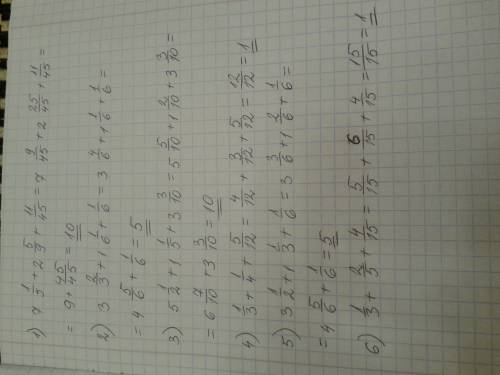 1) 7 1/5 + 2 5/9 + 11/45 = 7 9/45 + 2 25/45 + 11/45 =
= 9 + 45/45 = 10
2) 3 2/3 + 1 1/6 + 1/6 = 3 4/6 + 1 1/6 + 1/6 =
= 4 5/6 + 1/6 = 5
3) 5 1/2 + 1 1/5 + 3 3/10 = 5 5/10 + 1 2/10 + 3 3/10 =
= 6 7/10 + 3 3/10 = 10
4) 1/3 + 1/4 + 5/12 = 4/12 + 3/12 + 5/12 = 12/12 = 1
5) 3 1/2 + 1 1/3 + 1/6 = 3 3/6 + 1 2/6 + 1/6 =
= 4 5/6 + 1/6 = 5
6) 1/3 + 2/5 + 4/15 = 5/15 + 6/15 + 4/15 = 15/15 = 1